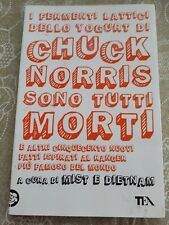 I FERMENTI LATTICI
DELLO YOGURT DI
CHUCK
NORRIS
SONO TUTTI
MORTI
E ALTRI CINQUECENTO NUOVI
FATTI ISPIRATI AL RANGER
PIÙ FAMOSO DEL MONDO
A CURA DI MIST E DIETNAM
TEA